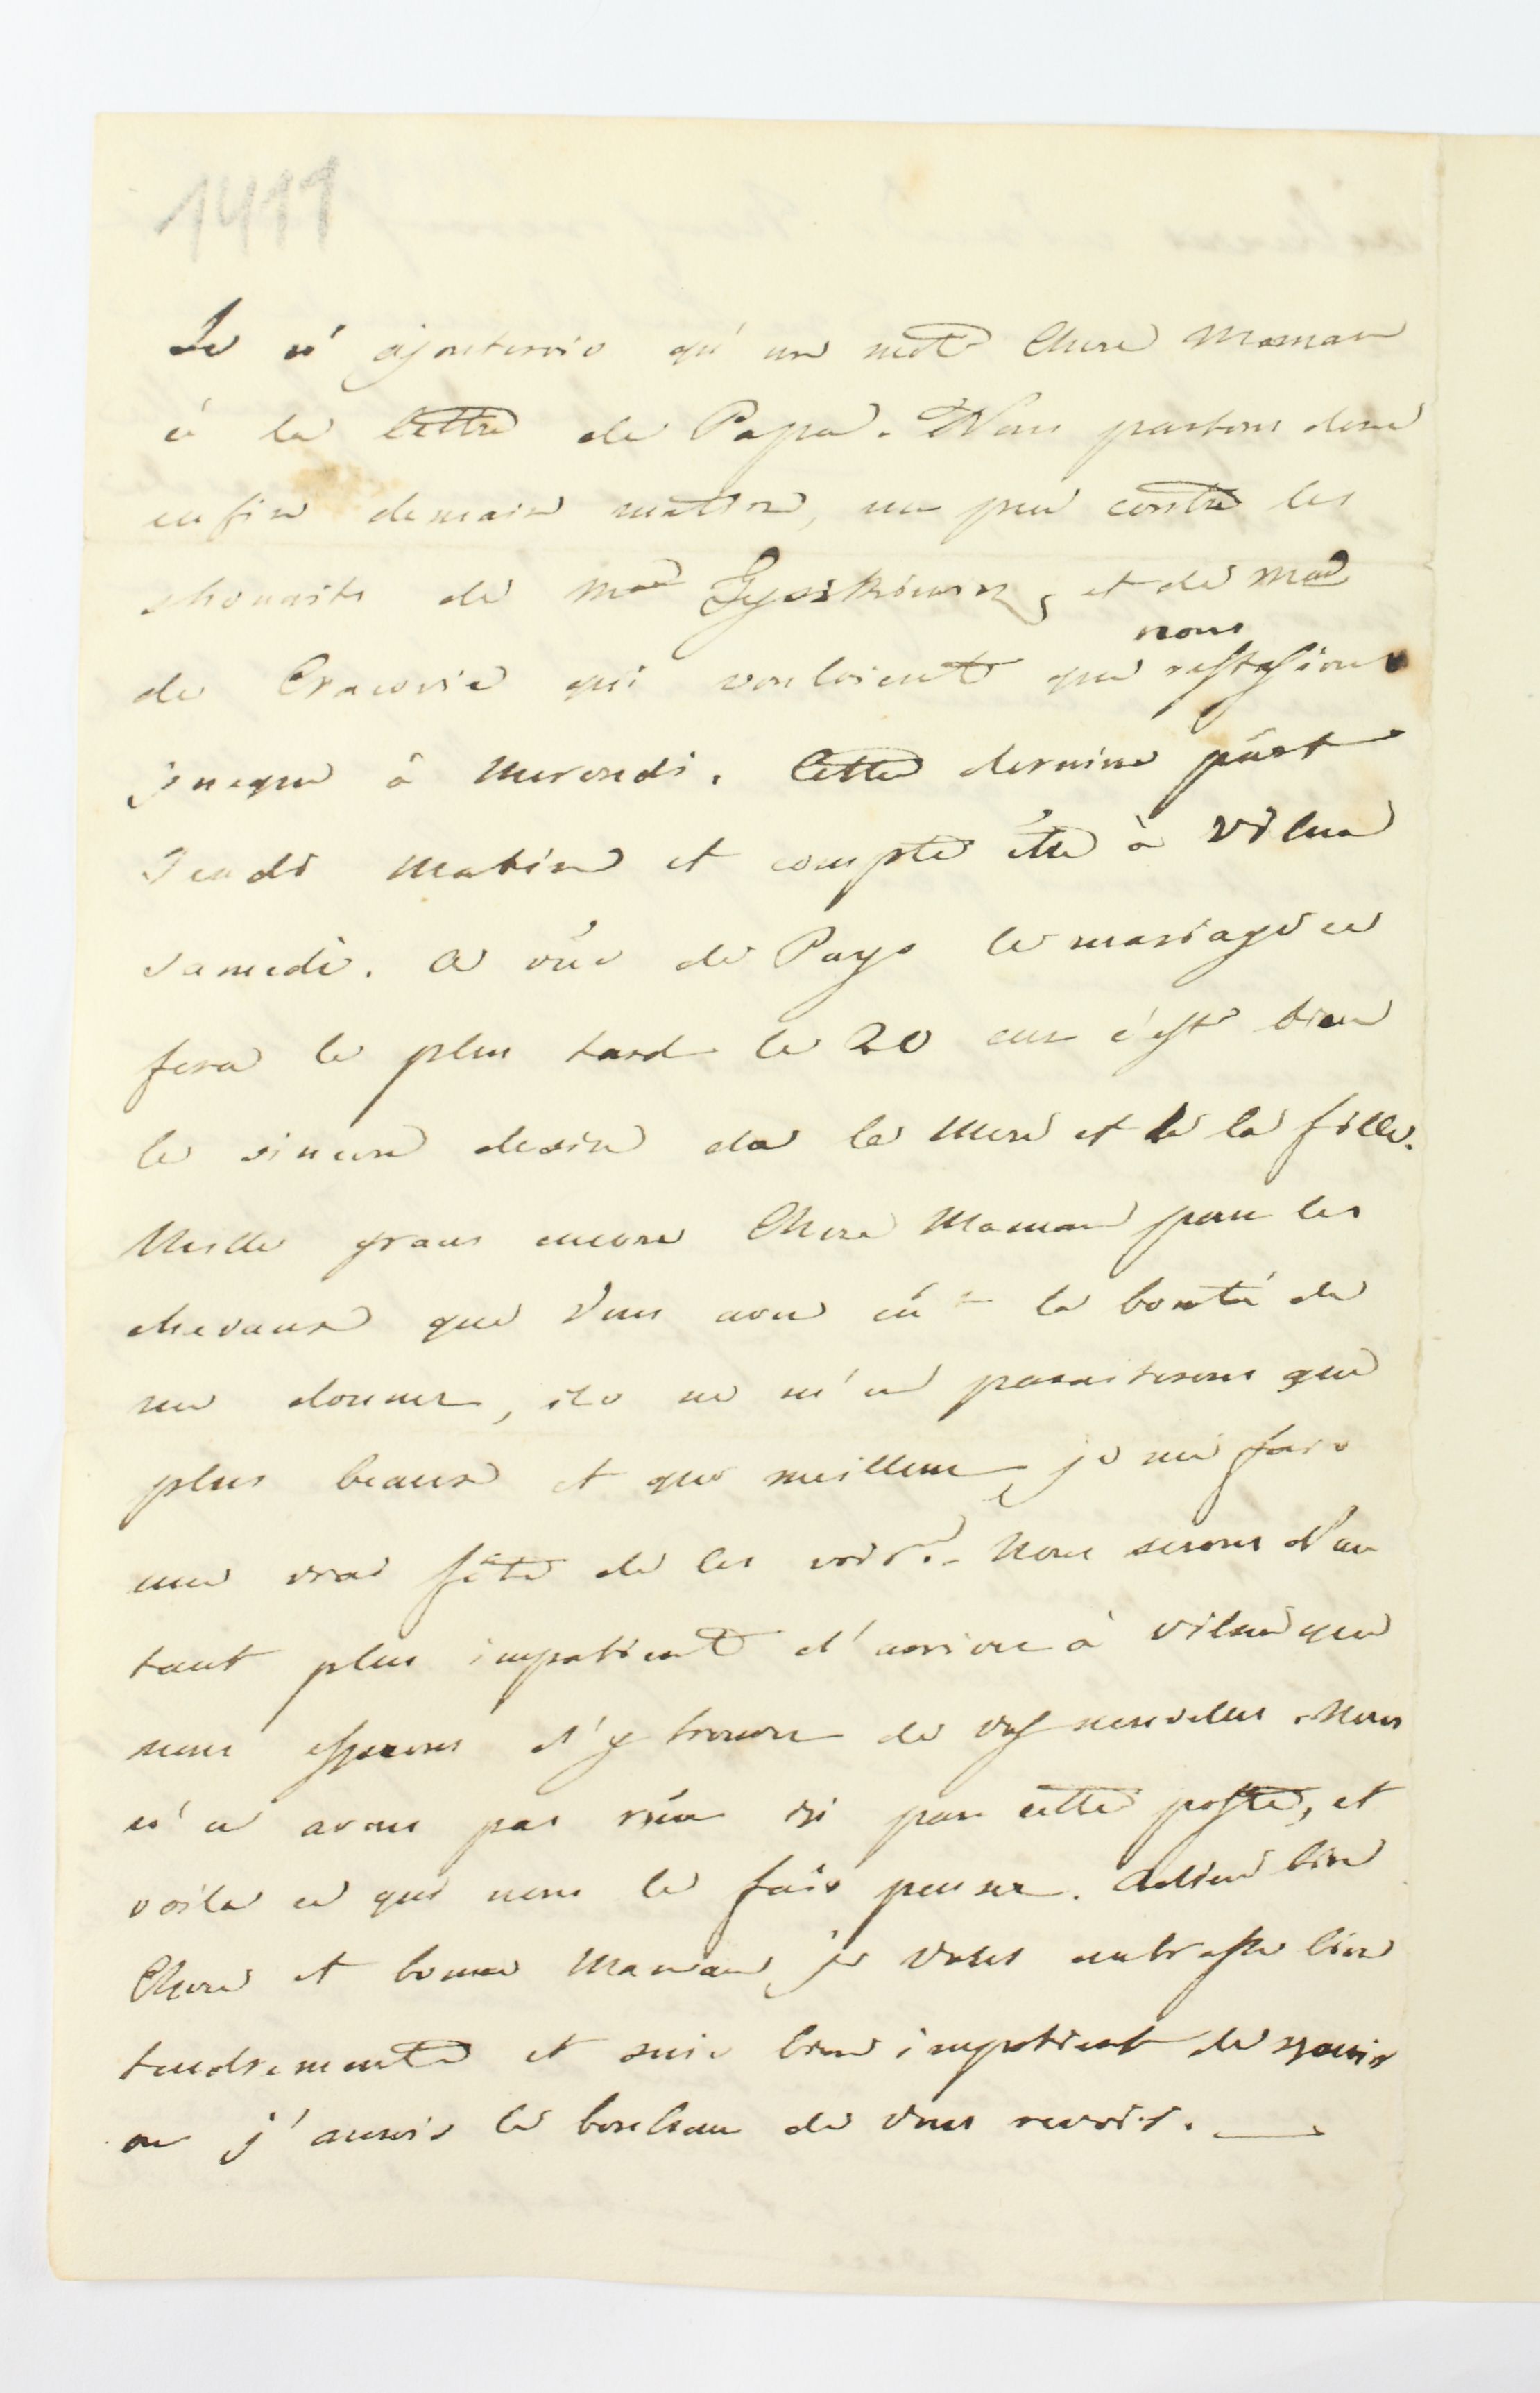 1411
Je n'ajouterais qu'un mot Chere Maman
à la lettre de Papa. Nous partons donc
enfin demain matin, un peu contre les
shouaits de Mme et de Mad
nous
de Cracovie qui vouloient que restassions
jusque à Mercredi. Cette derniere part
Jeudi matin et compte être à Vilna
samedi. A vûe de Pays le mariage ce
fera le plus tard le 20 car c'est bien
le sincere desire de la Mere et de la fille.
Mille graces encore Chere Maman pour les
chevaux que Vous avez eû la bonté de
me donner, ils ne m'en paraiterons que
plus beaux et que meilleur, je me fais
une vrai fête de les voir. - Nous serons d'au
tant plus impatient d'arriver à Vilna que
nous esperons d'y trouver de vos nouvelles. Nous
n'en avons pas reçu ici par cette poste, et
voila ce qui nous le fais penser. Adieu bien
Chere et bonne Maman, je Vous embrasse bien
tendrement et suis bien impatient de sçavoir
ou j'aurais le bonheur de Vous revoir. —